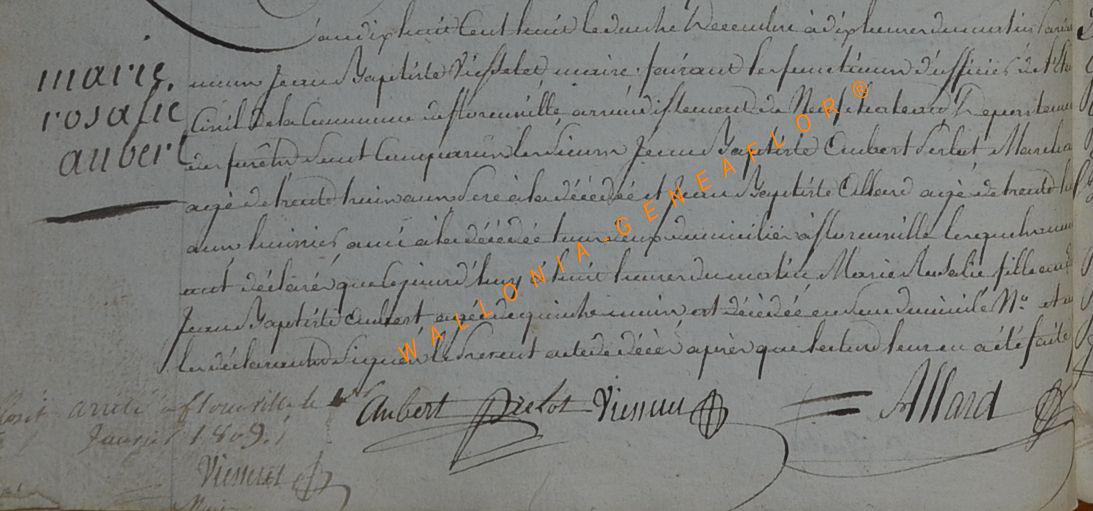 marie
rosalie
aubert
L'an dix huit Cent huit le douze Decembre à dix heures du matin
Jean Baptiste maire faisant les fonctions d'officier de l'état
Civil de la Commune de florenville arrondissement de Neufchateau Departement
des forêts Sont Comparus les Sieurs Jean Baptiste Aubert
agé de trente huit ans Père à la décédée et Jean Baptiste Allard agé de trente
ans ami à la décédée tous deux domiciliés à florenville lesquels nous
ont déclaré que le jourd'huy à huit heures du matin Marie Rosalie fille
Jean Baptiste Aubert agée de quinze mois est décédée en son domicile N° et
les déclarants Signés le Present acte de décès après que lecture leur en a été faite
Aubert Allard
arrêté à florenville le
Janvier 1809.
WALLONIA-GENEAFLOR ®